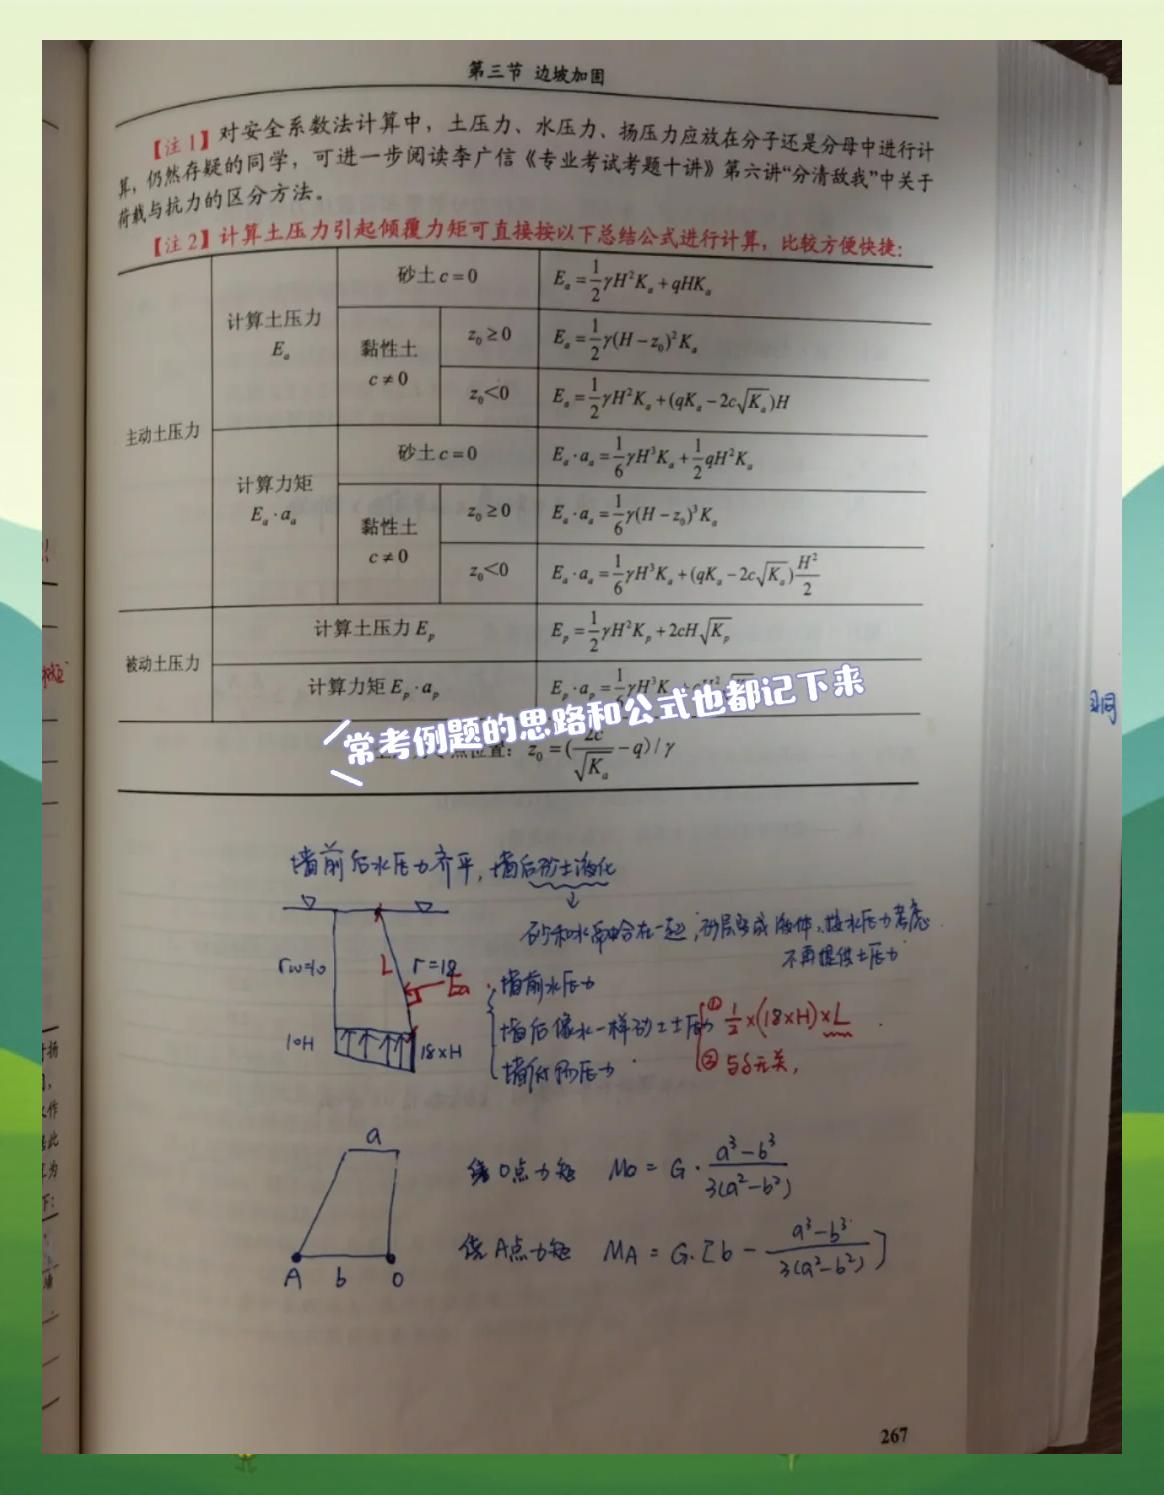 第三节 边坡加固
【注1】对安全系数法计算中，土压力、水压力、扬压力应放在分子还是分母中进行计
算，仍然存疑的同学，可进一步阅读李广信《专业考试考题十讲》第六讲“分清敌我”中关于
荷载与抗力的区分方法。
【注2】计算土压力引起倾覆力矩可直接按以下总结公式进行计算，比较方便快捷：
主动土压力
计算土压力 Eₐ
砂土 c = 0
Eₐ = 1/2 γH²Kₐ + qHKₐ
黏性土 c ≠ 0
z₀ ≥ 0
Eₐ = 1/2 γ(H − z₀)²Kₐ
z₀<0
Eₐ = 1/2 γH²Kₐ + (qKₐ − 2c√Kₐ)H
计算力矩 Eₐ · aₐ
砂土 c = 0
Eₐ · aₐ = 1/6 γH³Kₐ + 1/2 qH²Kₐ
黏性土 c ≠ 0
z₀ ≥ 0
Eₐ · aₐ = 1/6 γ(H − z₀)³Kₐ
z₀<0
Eₐ · aₐ = 1/6 γH³Kₐ + (qKₐ − 2c√Kₐ) H²/2
被动土压力
计算土压力 Eₚ
Eₚ = 1/2 γH²Kₚ + 2cH√Kₚ
计算力矩 Eₚ · aₚ
Eₚ · aₚ = 1/6 γH³K
常考例题的思路和公式也都记下来
位置：z₀ = (2c/√Kₐ − q) / γ
习同
墙前后水压力齐平，墙后砂土液化
砂和水混合在一起，砂层变成液体，按水压力考虑
不再提供土压力
rw=10
L
r=18
Ea
10H
18×H
墙前水压力
墙后像水一样的土压力
墙底扬压力
① 1/2×(18×H)×L
② 与δ无关，
a
A b O
绕O点力矩 Mo = G · (a³−b³)/(3(a²−b²))
绕A点力矩 MA = G·[b − (a³−b³)/(3(a²−b²))]
267